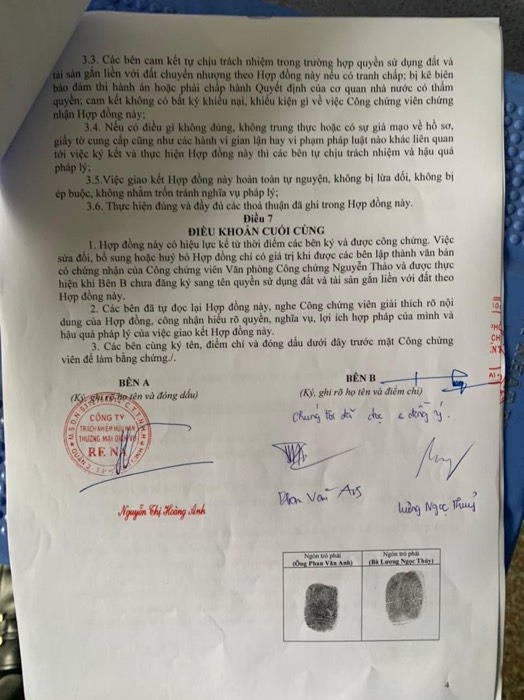 3.3. Các bên cam kết tự chịu trách nhiệm trong trường hợp quyền sử dụng đất và
tài sản gắn liền với đất chuyển nhượng theo Hợp đồng này nếu có tranh chấp; bị kê biên
bảo đảm thi hành án hoặc phải chấp hành Quyết định của cơ quan nhà nước có thẩm
quyền; cam kết không có bất kỳ khiếu nại, khiếu kiện gì về việc Công chứng viên chứng
nhận Hợp đồng này;
3.4. Nếu có điều gì không đúng, không trung thực hoặc có sự giả mạo về hồ sơ,
giấy tờ cung cấp cũng như các hành vi gian lận hay vi phạm pháp luật nào khác liên quan
tới việc ký kết và thực hiện Hợp đồng này thì các bên tự chịu trách nhiệm và hậu quả
pháp lý;
3.5.Việc giao kết Hợp đồng này hoàn toàn tự nguyện, không bị lừa dối, không bị
ép buộc, không nhằm trốn tránh nghĩa vụ pháp lý;
3.6. Thực hiện đúng và đầy đủ các thoả thuận đã ghi trong Hợp đồng này.
Điều 7
ĐIỀU KHOẢN CUỐI CÙNG
1. Hợp đồng này có hiệu lực kể từ thời điểm các bên ký và được công chứng. Việc
sửa đổi, bổ sung hoặc huỷ bỏ Hợp đồng chỉ có giá trị khi được các bên lập thành văn bản
có chứng nhận của Công chứng viên Văn phòng Công chứng Nguyễn Thảo và được thực
hiện khi Bên B chưa đăng ký sang tên quyền sử dụng đất và tài sản gắn liền với đất theo
Hợp đồng này.
2. Các bên đã tự đọc lại Hợp đồng này, nghe Công chứng viên giải thích rõ nội
dung của Hợp đồng, công nhận hiểu rõ quyền, nghĩa vụ, lợi ích hợp pháp của mình và
hậu quả pháp lý của việc giao kết Hợp đồng này.
3. Các bên cùng ký tên, điểm chỉ và đóng dấu dưới đây trước mặt Công chứng
viên để làm bằng chứng./.
BÊN A
(Ký, ghi rõ họ tên và đóng dấu)
CÔNG TY
TRÁCH NHIỆM HỮU HẠN
THƯƠNG MẠI DỊCH VỤ
Nguyễn Thị Hoàng Anh
BÊN B
(Ký, ghi rõ họ tên và điểm chỉ)
Chúng tôi đã đọc & đồng ý.
Phan Văn Anh
Lương Ngọc Thuý
Ngón trỏ phải
(Ông Phan Văn Anh)
Ngón trỏ phải
(Bà Lương Ngọc Thúy)
4